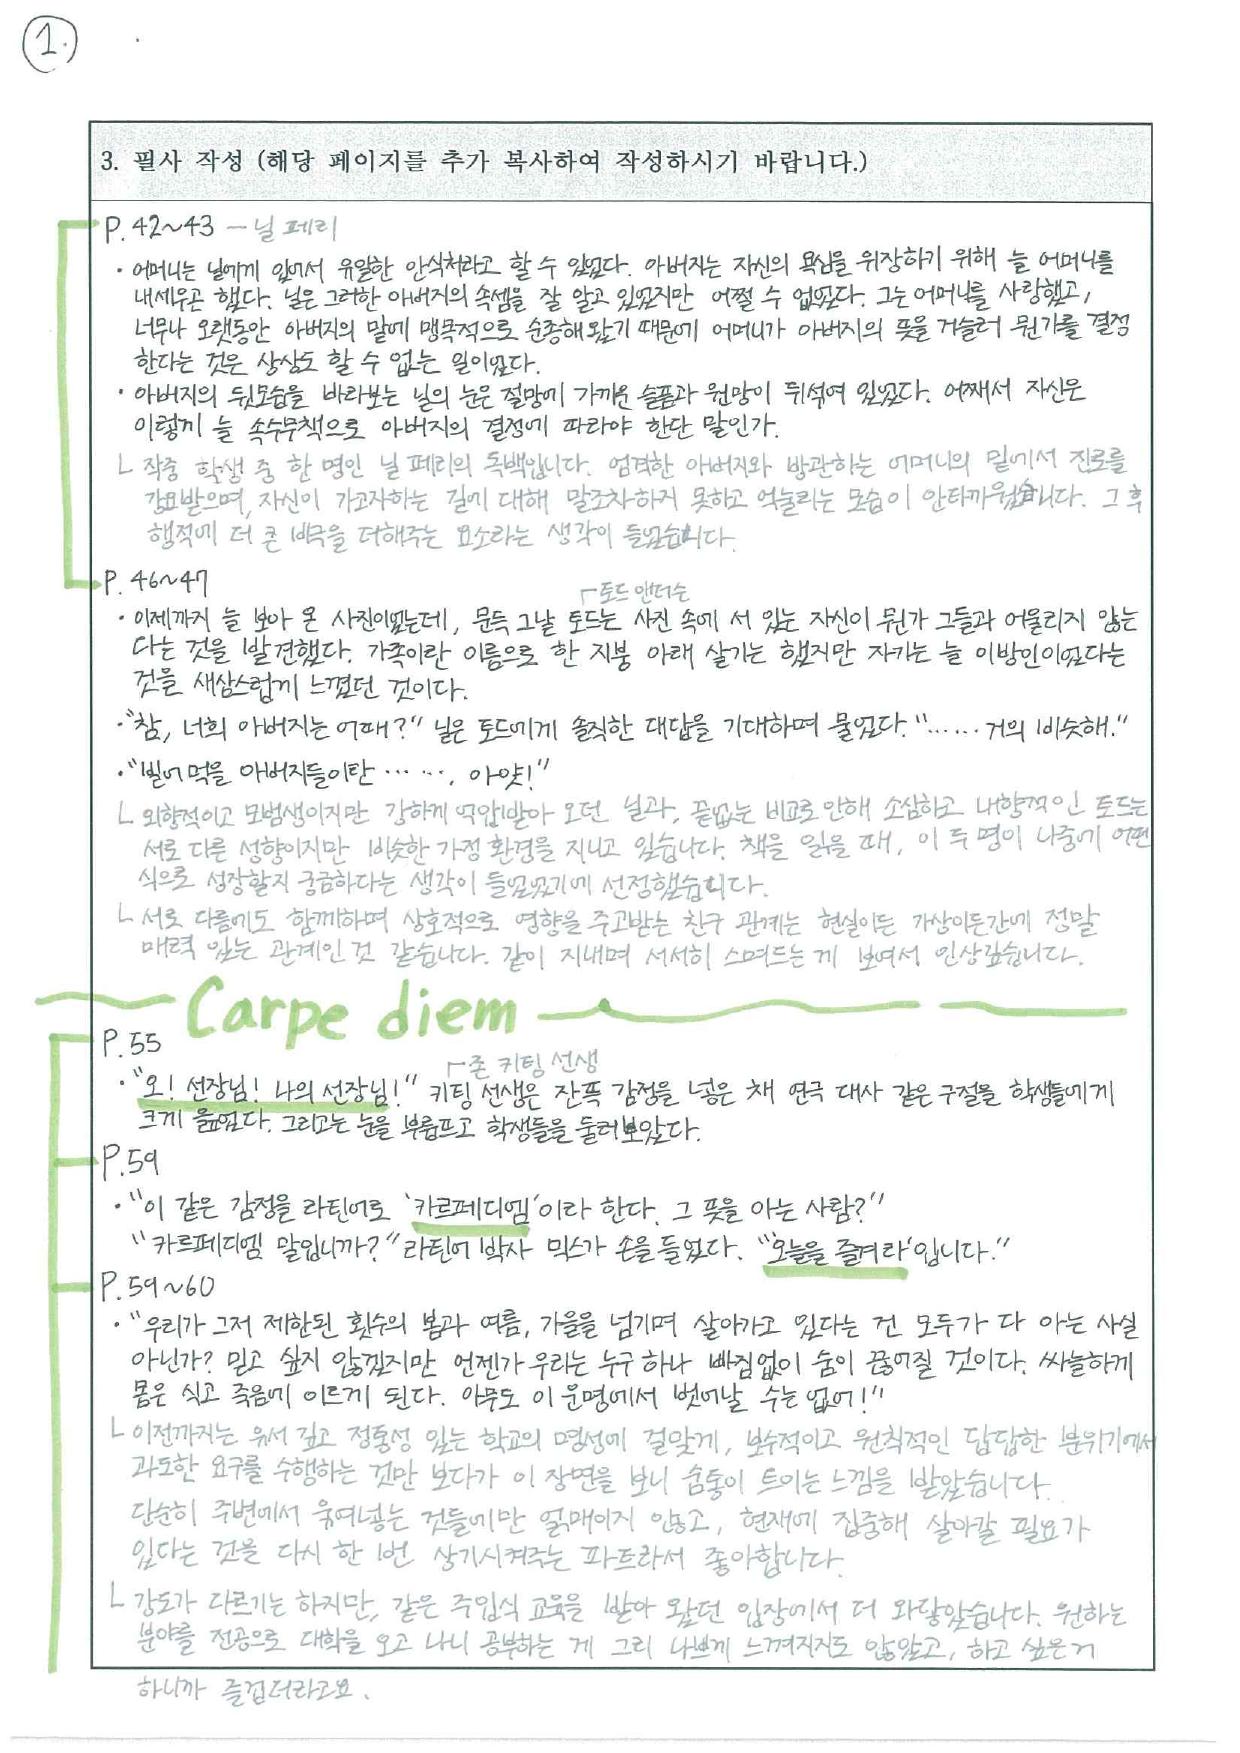 1.
3. 필사 작성 (해당 페이지를 추가 복사하여 작성하시기 바랍니다.)
P.42~43 - 닐 페리
· 어머니는 닐에게 있어서 유일한 안식처라고 할 수 있었다. 아버지는 자신의 욕심을 위장하기 위해 늘 어머니를
내세우곤 했다. 닐은 그러한 아버지의 속셈을 잘 알고 있었지만 어쩔 수 없었다. 그는 어머니를 사랑했고,
너무나 오랫동안 아버지의 말에 맹목적으로 순종해 왔기 때문에 어머니가 아버지의 뜻을 거슬러 뭔가를 결정
한다는 것은 상상도 할 수 없는 일이었다.
· 아버지의 뒷모습을 바라보는 닐의 눈은 절망에 가까운 슬픔과 원망이 뒤섞여 있었다. 어째서 자신은
이렇게 늘 속수무책으로 아버지의 결정에 따라야 한단 말인가.
ㄴ 작중 학생 중 한 명인 닐 페리의 독백입니다. 엄격한 아버지와 방관하는 어머니의 밑에서 진로를
강요받으며, 자신이 가고자하는 길에 대해 말조차하지 못하고 억눌리는 모습이 안타까웠습니다. 그 후
행적에 더 큰 비극을 더해주는 요소라는 생각이 들었습니다.
P. 46~47
┌토드 앤더슨
· 이제까지 늘 보아 온 사진이었는데, 문득 그날 토드는 사진 속에 서 있는 자신이 뭔가 그들과 어울리지 않는
다는 것을 발견했다. 가족이란 이름으로 한 지붕 아래 살기는 했지만 자기는 늘 이방인이었다는
것을 새삼스럽게 느꼈던 것이다.
· "참, 너희 아버지는 어때?" 닐은 토드에게 솔직한 대답을 기대하며 물었다. "…… 거의 비슷해."
· "빌어먹을 아버지들이란 ……, 아얏!"
ㄴ 외향적이고 모범생이지만 강하게 억압받아 오던 닐과, 끝없는 비교로 인해 소심하고 내향적인 토드는
서로 다른 성향이지만 비슷한 가정 환경을 지니고 있습니다. 책을 읽을 때, 이 두 명이 나중에 어떤
식으로 성장할지 궁금하다는 생각이 들었었기에 선정했습니다.
ㄴ 서로 다름에도 함께하며 상호적으로 영향을 주고받는 친구 관계는 현실이든 가상이든간에 정말
매력 있는 관계인 것 같습니다. 같이 지내며 서서히 스며드는 게 보여서 인상깊습니다.
Carpe diem
P.55
┌존 키팅 선생
· "오! 선장님! 나의 선장님!" 키팅 선생은 잔뜩 감정을 넣은 채 연극 대사 같은 구절을 학생들에게
크게 읊었다. 그리고는 눈을 부릅뜨고 학생들을 둘러보았다.
P.59
· "이 같은 감정을 라틴어로 '카르페디엠'이라 한다. 그 뜻을 아는 사람?"
"카르페디엠 말입니까?" 라틴어 박사 믹스가 손을 들었다. "'오늘을 즐겨라'입니다."
P.59~60
· "우리가 그저 제한된 횟수의 봄과 여름, 가을을 넘기며 살아가고 있다는 건 모두가 다 아는 사실
아닌가? 믿고 싶지 않겠지만 언젠가 우리는 누구 하나 빠짐없이 숨이 끊어질 것이다. 싸늘하게
몸은 식고 죽음에 이르게 된다. 아무도 이 운명에서 벗어날 수는 없어!"
ㄴ 이전까지는 유서 깊고 정통성 있는 학교의 명성에 걸맞게, 보수적이고 원칙적인 답답한 분위기에서
과도한 요구를 수행하는 것만 보다가 이 장면을 보니 숨통이 트이는 느낌을 받았습니다.
단순히 주변에서 욱여넣는 것들에만 얽매이지 않고, 현재에 집중해 살아갈 필요가
있다는 것을 다시 한 1번 상기시켜주는 파트라서 좋아합니다.
ㄴ 강도가 다르기는 하지만, 같은 주입식 교육을 받아 왔던 입장에서 더 와닿았습니다. 원하는
분야를 전공으로 대학을 오고 나니 공부하는 게 그리 나쁘게 느껴지지도 않았고, 하고 싶은거
하니까 즐겁더라고요.